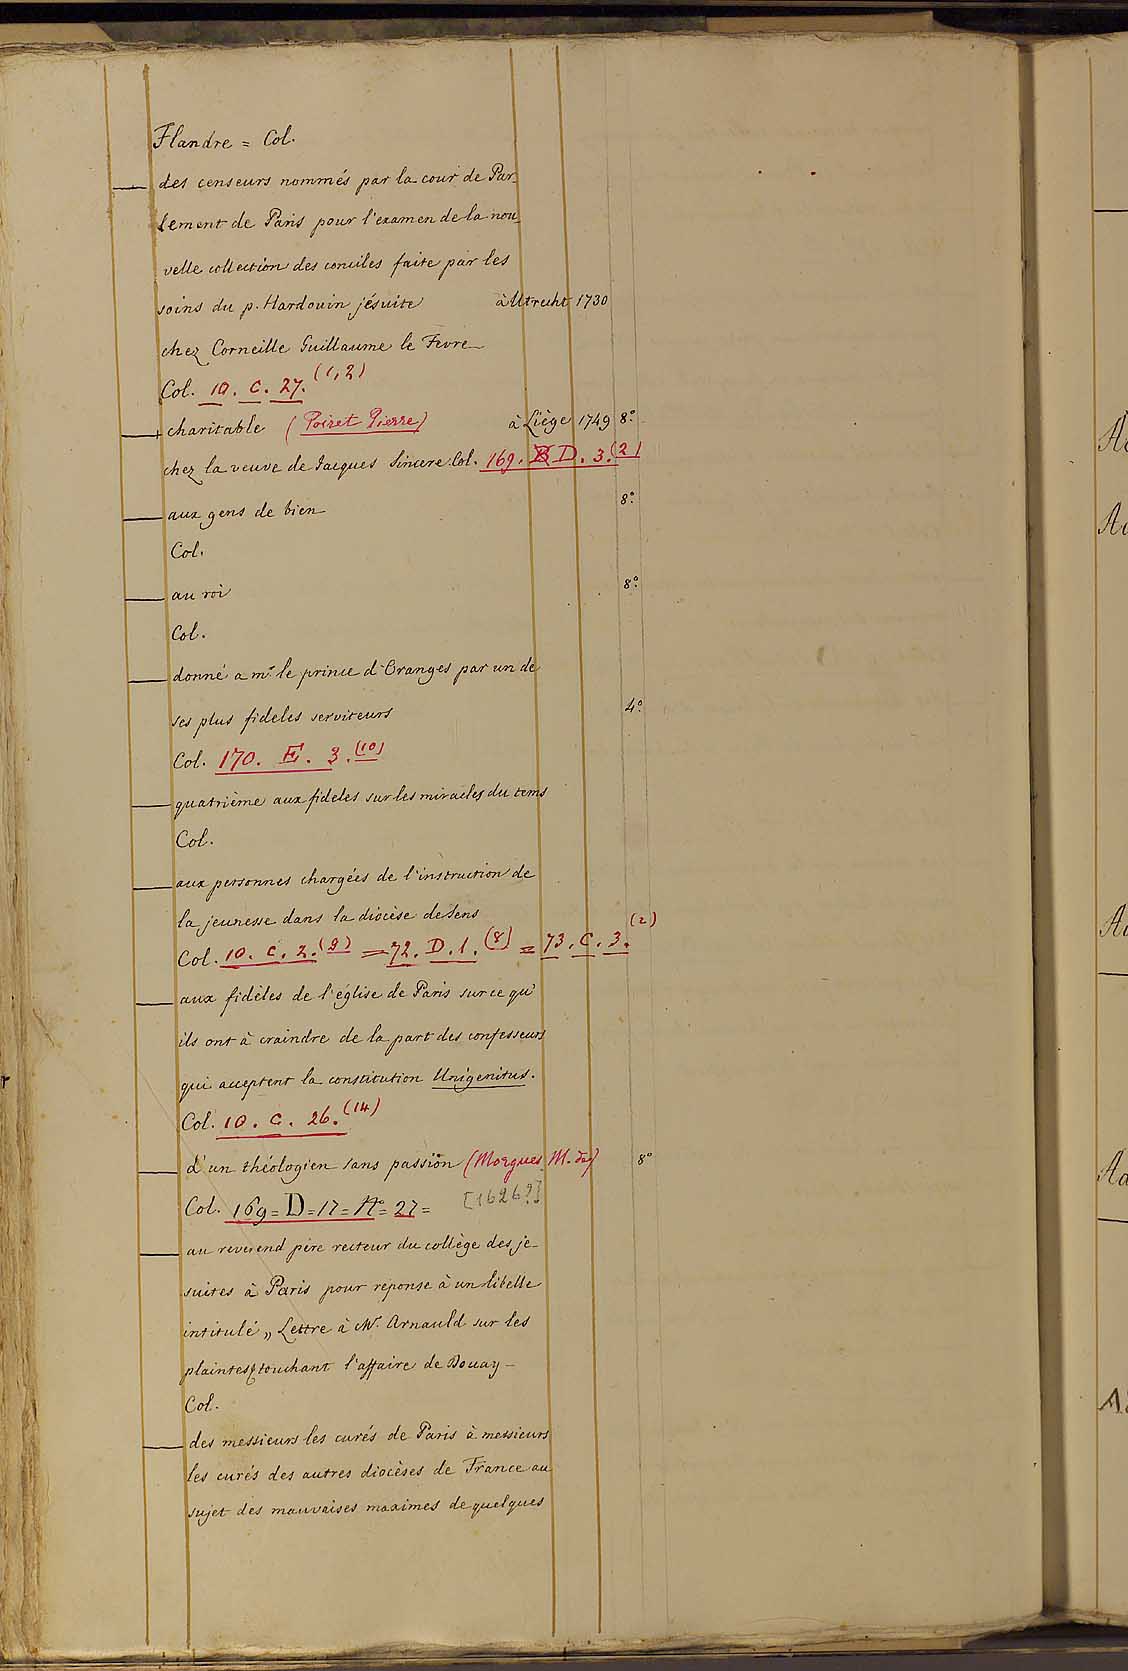 Flandre = Col.
— des censeurs nommés par la cour de Par-
lement de Paris pour l'examen de la nou-
velle collection des conciles faite par les
soins du p. Hardouin jésuite à Utrecht 1730
chez Corneille Guillaume le Fevre
Col. 10. C. 27. (1,2)
— charitable (Poiret Pierre) à Liège 1749 8.°
chez la veuve de Jacques Sincere Col. 169. D. 3. (2)
— aux gens de bien 8.°
Col.
— au roi 8.°
Col.
— donné a mr. le prince d'Oranges par un de
ses plus fideles serviteurs 4.°
Col. 170. E. 3. (10)
— quatrième aux fideles sur les miracles du tems
Col.
— aux personnes chargées de l'instruction de
la jeunesse dans la diocèse de Sens
Col. 10. C. 2. (9) = 72. D. 1. (8) = 73. C. 3. (2)
— aux fidèles de l'église de Paris sur ce qu'
ils ont à craindre de la part des confesseurs
qui acceptent la constitution Unigenitus.
Col. 10. C. 26. (14)
— d'un théologien sans passion (Morgues M. de) 8°
Col. 169 = D = 17 = N° = 27 = [1626?]
— au reverend père recteur du collège des je-
suites à Paris pour reponse à un libelle
intitulé „ Lettre à Mr. Arnauld sur les
plaintes touchant l'affaire de Douay –
Col.
— des messieurs les curés de Paris à messieurs
les curés des autres diocèses de France au
sujet des mauvaises maximes de quelques